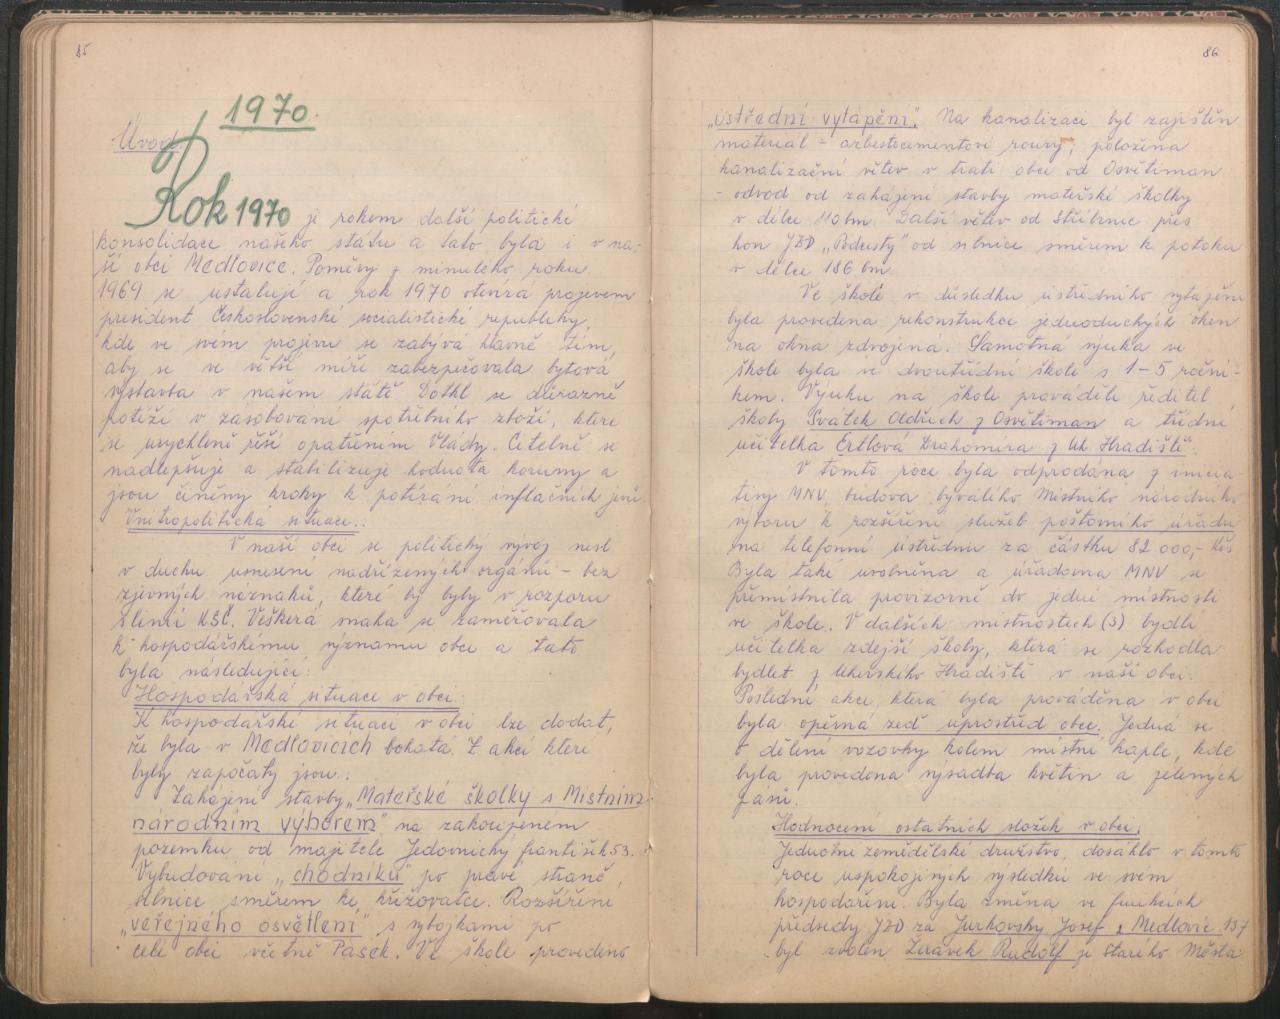 85
1970.
Úvod
Rok 1970 je rokem další politické
konsolidace našeho státu a tato byla i v na-
ší obci Medlovice. Poměry z minulého roku
1969 se ustalují a rok 1970 otvírá projevem
president Československé socialistické republiky,
kde ve svém projevu se zabývá hlavně tím,
aby se ve větší míře zabezpečovala bytová
výstavba v našem státě. Dotkl se důrazně
potíží v zásobování spotřebního zboží, které
se urychleně řeší opatřením vlády. Citelně se
nadlepšuje a stabilizuje hodnota koruny a
jsou činěny kroky k potírání inflačních jevů.
Vnitropolitická situace.:
V naší obci se politický vývoj nesl
v duchu usnesení nadřízených orgánů - bez
zjevných náznaků, které by byly v rozporu
s linií KSČ. Veškerá snaha se zaměřovala
k hospodářskému významu obce a tato
byla následující:
Hospodářská situace v obci:
K hospodářské situaci v obci lze dodat,
že byla v Medlovicích bohatá. Z akcí které
byly započaty jsou.:
Zahájení stavby „Mateřské školky s Místním
národním výborem" na zakoupeném
pozemku od majitele Jedovnický František 53.
Vybudování „chodníků" po pravé straně
silnice směrem ke křižovatce. Rozšíření
„veřejného osvětlení" s výbojkami po
celé obci včetně Pasek. Ve škole provedeno
86
„ústřední vytápění". Na kanalizaci byl zajištěn
materiál - azbestocementové roury, položena
kanalizační větev v trati obci od Osvětiman
- odvod od zahájené stavby mateřské školky
v délce 110 bm. Další větev od Stříbrnic přes
hon JZD „Podcesty" od silnice směrem k potoku
v délce 186 bm.
Ve škole v důsledku ústředního vytápění
byla provedena rekonstrukce jednoduchých oken
na okna zdvojená. Samotná výuka ve
škole byla ve dvoutřídní škole s 1-5 roční-
kem. Výuku na škole prováděli ředitel
školy Svátek Oldřich z Osvětiman a třídní
učitelka Ertlová Drahomíra z Uh. Hradiště.
V tomto roce byla odprodána z inicia-
tivy MNV budova bývalého Místního národního
výboru k rozšíření služeb poštovního úřadu
na telefonní ústřednu za částku 82 000,- Kčs
Byla také uvolněna a úřadovna MNV se
přemístnila provizorně do jedné místnosti
ve škole. V dalších místnostech (3) bydlí
učitelka zdejší školy, která se rozhodla
bydlet z Uherského Hradiště v naší obci.
Poslední akce, která byla prováděna v obci
byla opěrná zeď uprostřed obce. Jedná se
o dělení vozovky kolem místní kaple, kde
byla provedena výsadba květin a zelených
pásů.
Hodnocení ostatních složek v obci.
Jednotné zemědělské družstvo, dosáhlo v tomto
roce uspokojivých výsledků ve svém
hospodaření. Byla změna ve funkcích
předsedy JZD za Jurkovský Josef z Medlovic 137
byl zvolen Žerávek Rudolf ze Starého Města